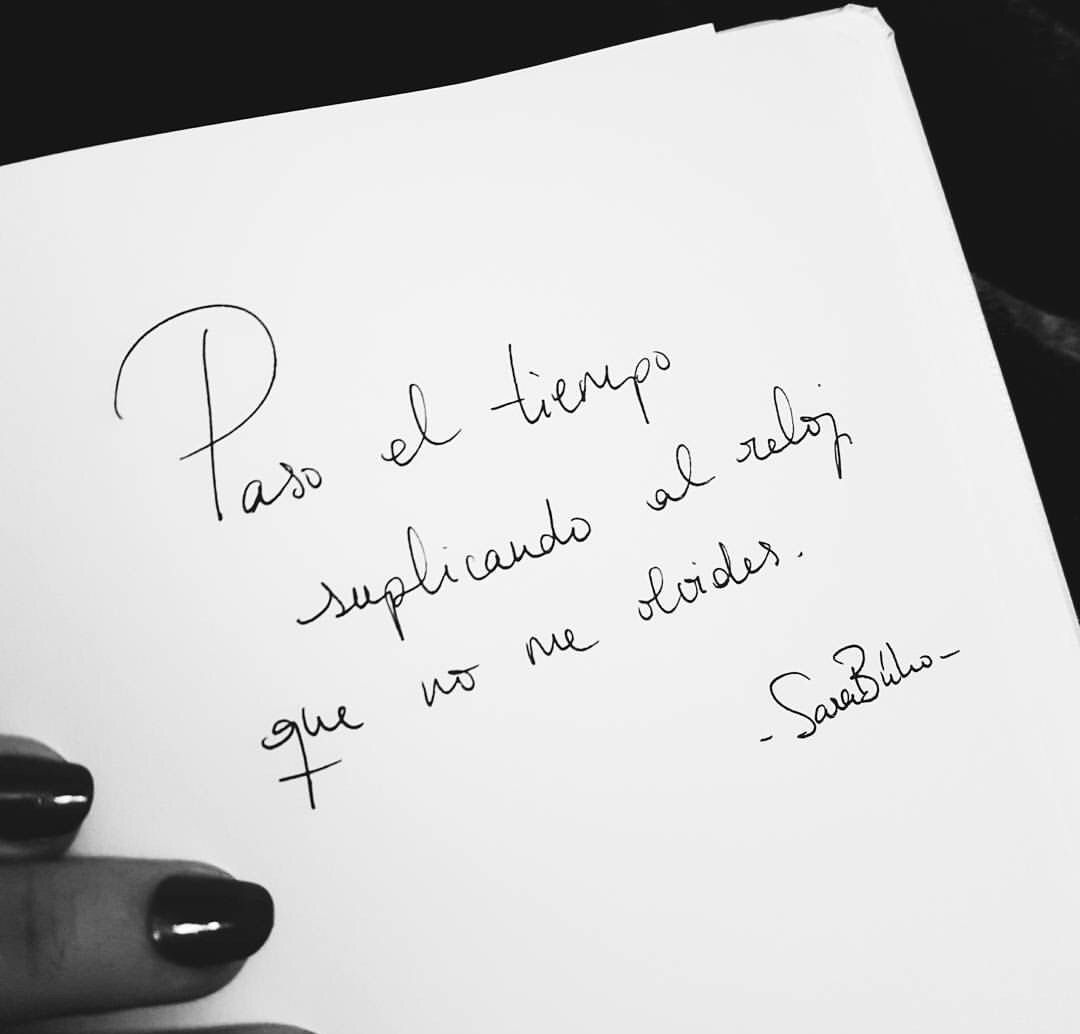 Paso el tiempo
suplicando al reloj
que no me olvides.
- SaraBúho -